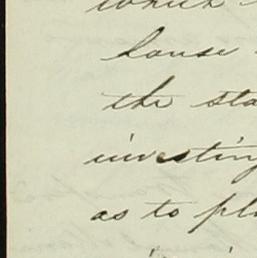 which
house
the sta
investing
as to pl